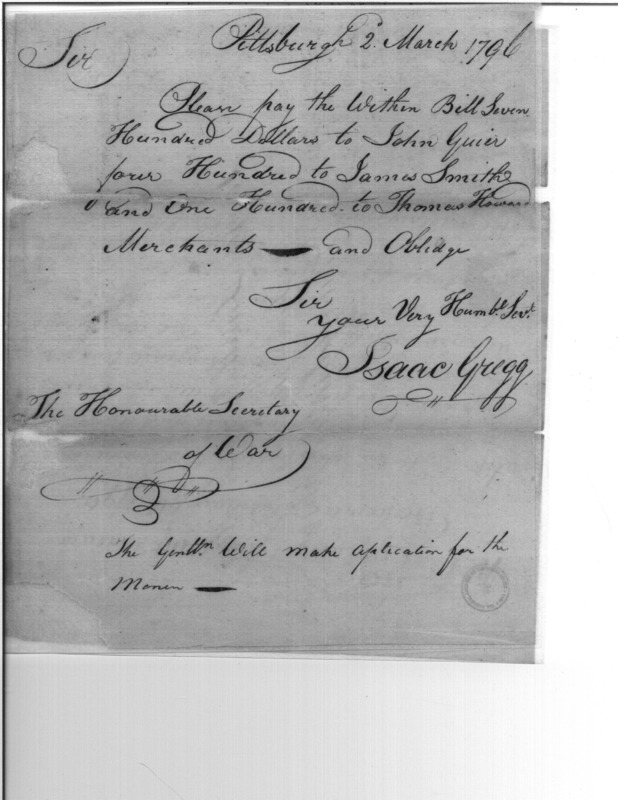 Pittsburgh 2. March 1796
Sir
Please pay the Within Bill Seven
Hundred Dollars to John Guier
four Hundred to James Smith
and One Hundred to Thomas Howard
Merchants — and Oblidge
Sir
your Very Humbl. Servt.
Isaac Gregg
The Honourable Secretary
of War
The Gentln. Will make application for the
Money —